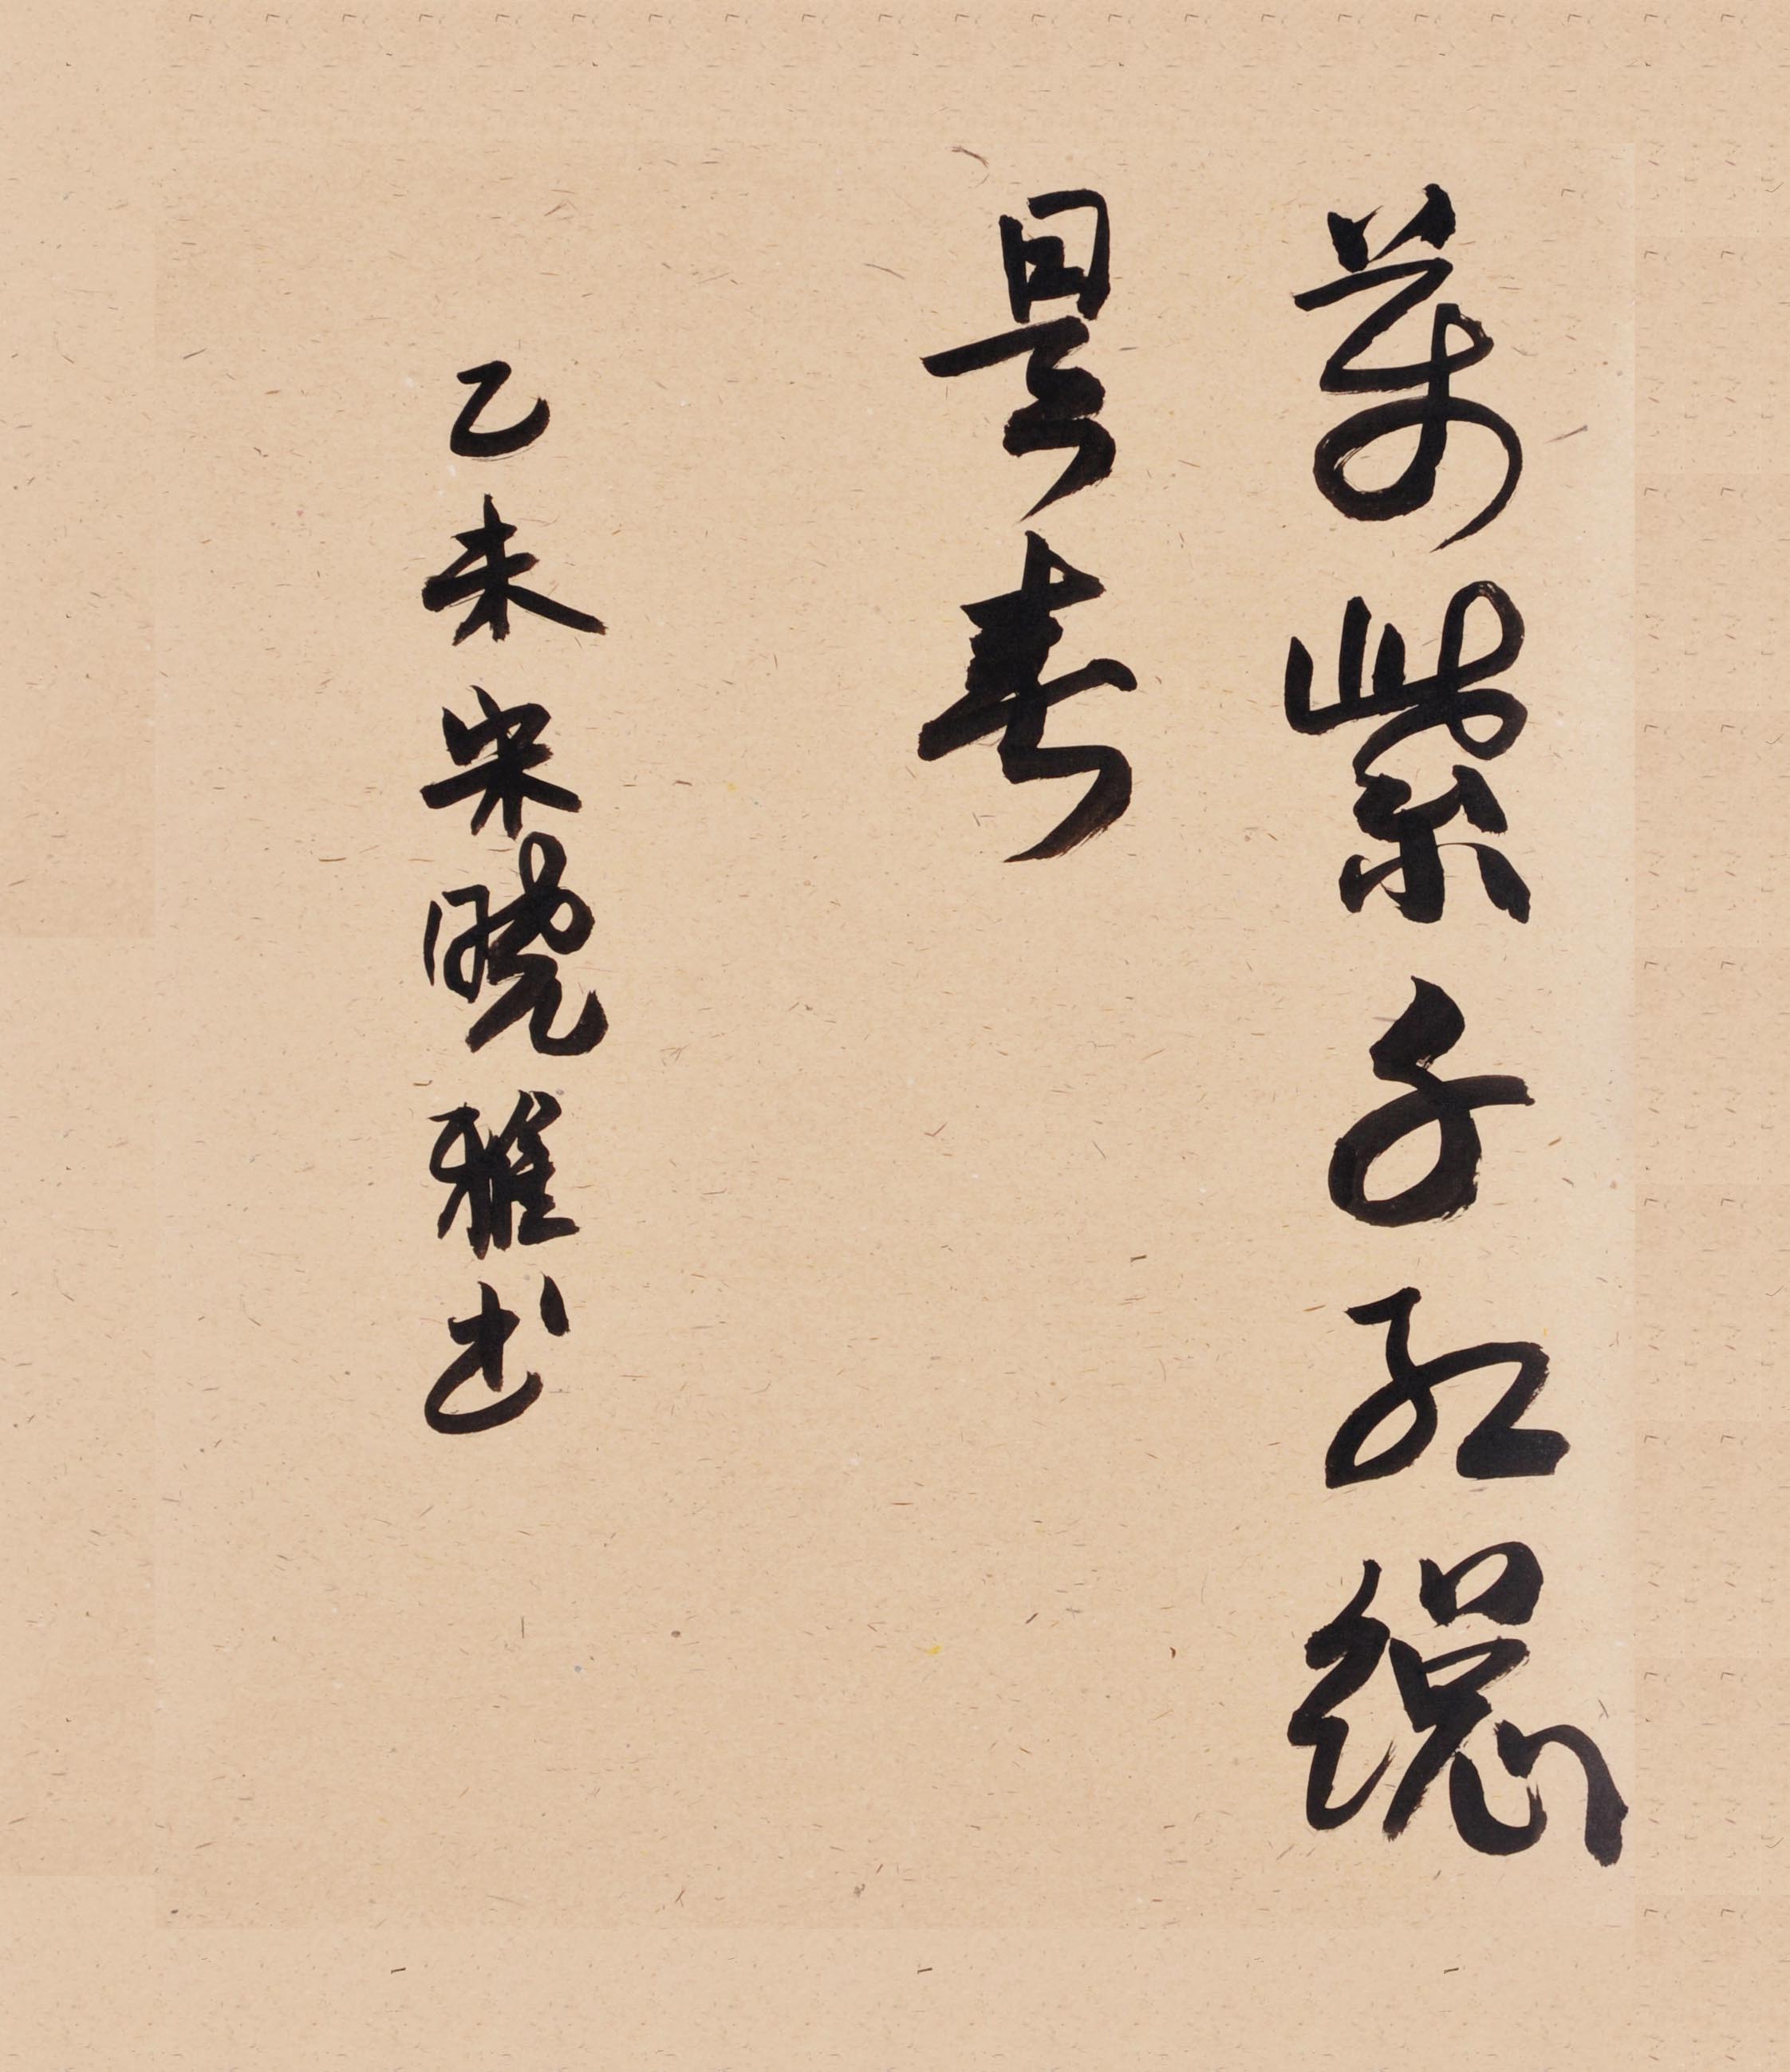 萬紫千紅總
是春
乙未宋曉雅书